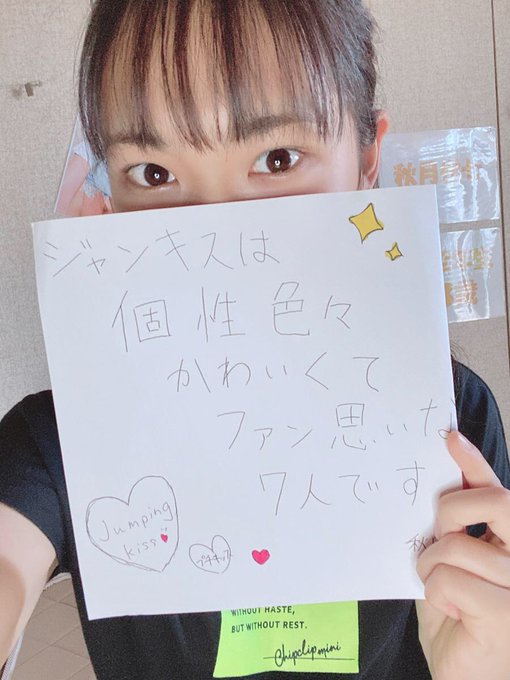 ジャンキスは
個性色々
かわいくて
ファン思いな
7人です
Jumping
kiss
秋
WITHOUT HASTE,
BUT WITHOUT REST.
Chipclip mini
秋月